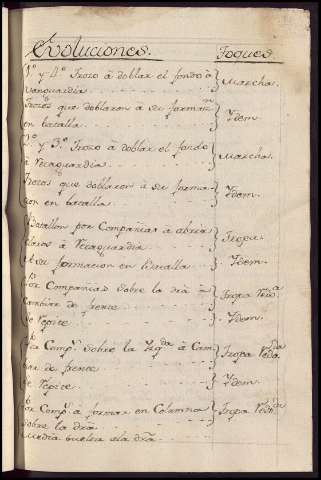 Evoluciones. Toques
1.º y 4.º Trozo á doblar el fondo á
Vanguardia } Marcha.
Trozos que doblaron á su forma.on
en batalla } Ydem.
2.º y 3.º Trozo á doblar el fondo
á Retaguardia } Marcha.
Trozos que doblaron á su forma-
cion en batalla } Ydem.
Batallon por Compañias á abrir
claros á Retaguardia } Tropa.
A su formacion en Batalla } Ydem.
Por Compañias sobre la dra á
cambiar de frente } Tropa
Se repite } Ydem.
Por Comp.s sobre la Yzq.da á Cam-
biar de frente } Tropa
Se repite } Ydem.
Por Comp.s á formar en Columna
sobre la dra } Tropa
Media buelta ala dra